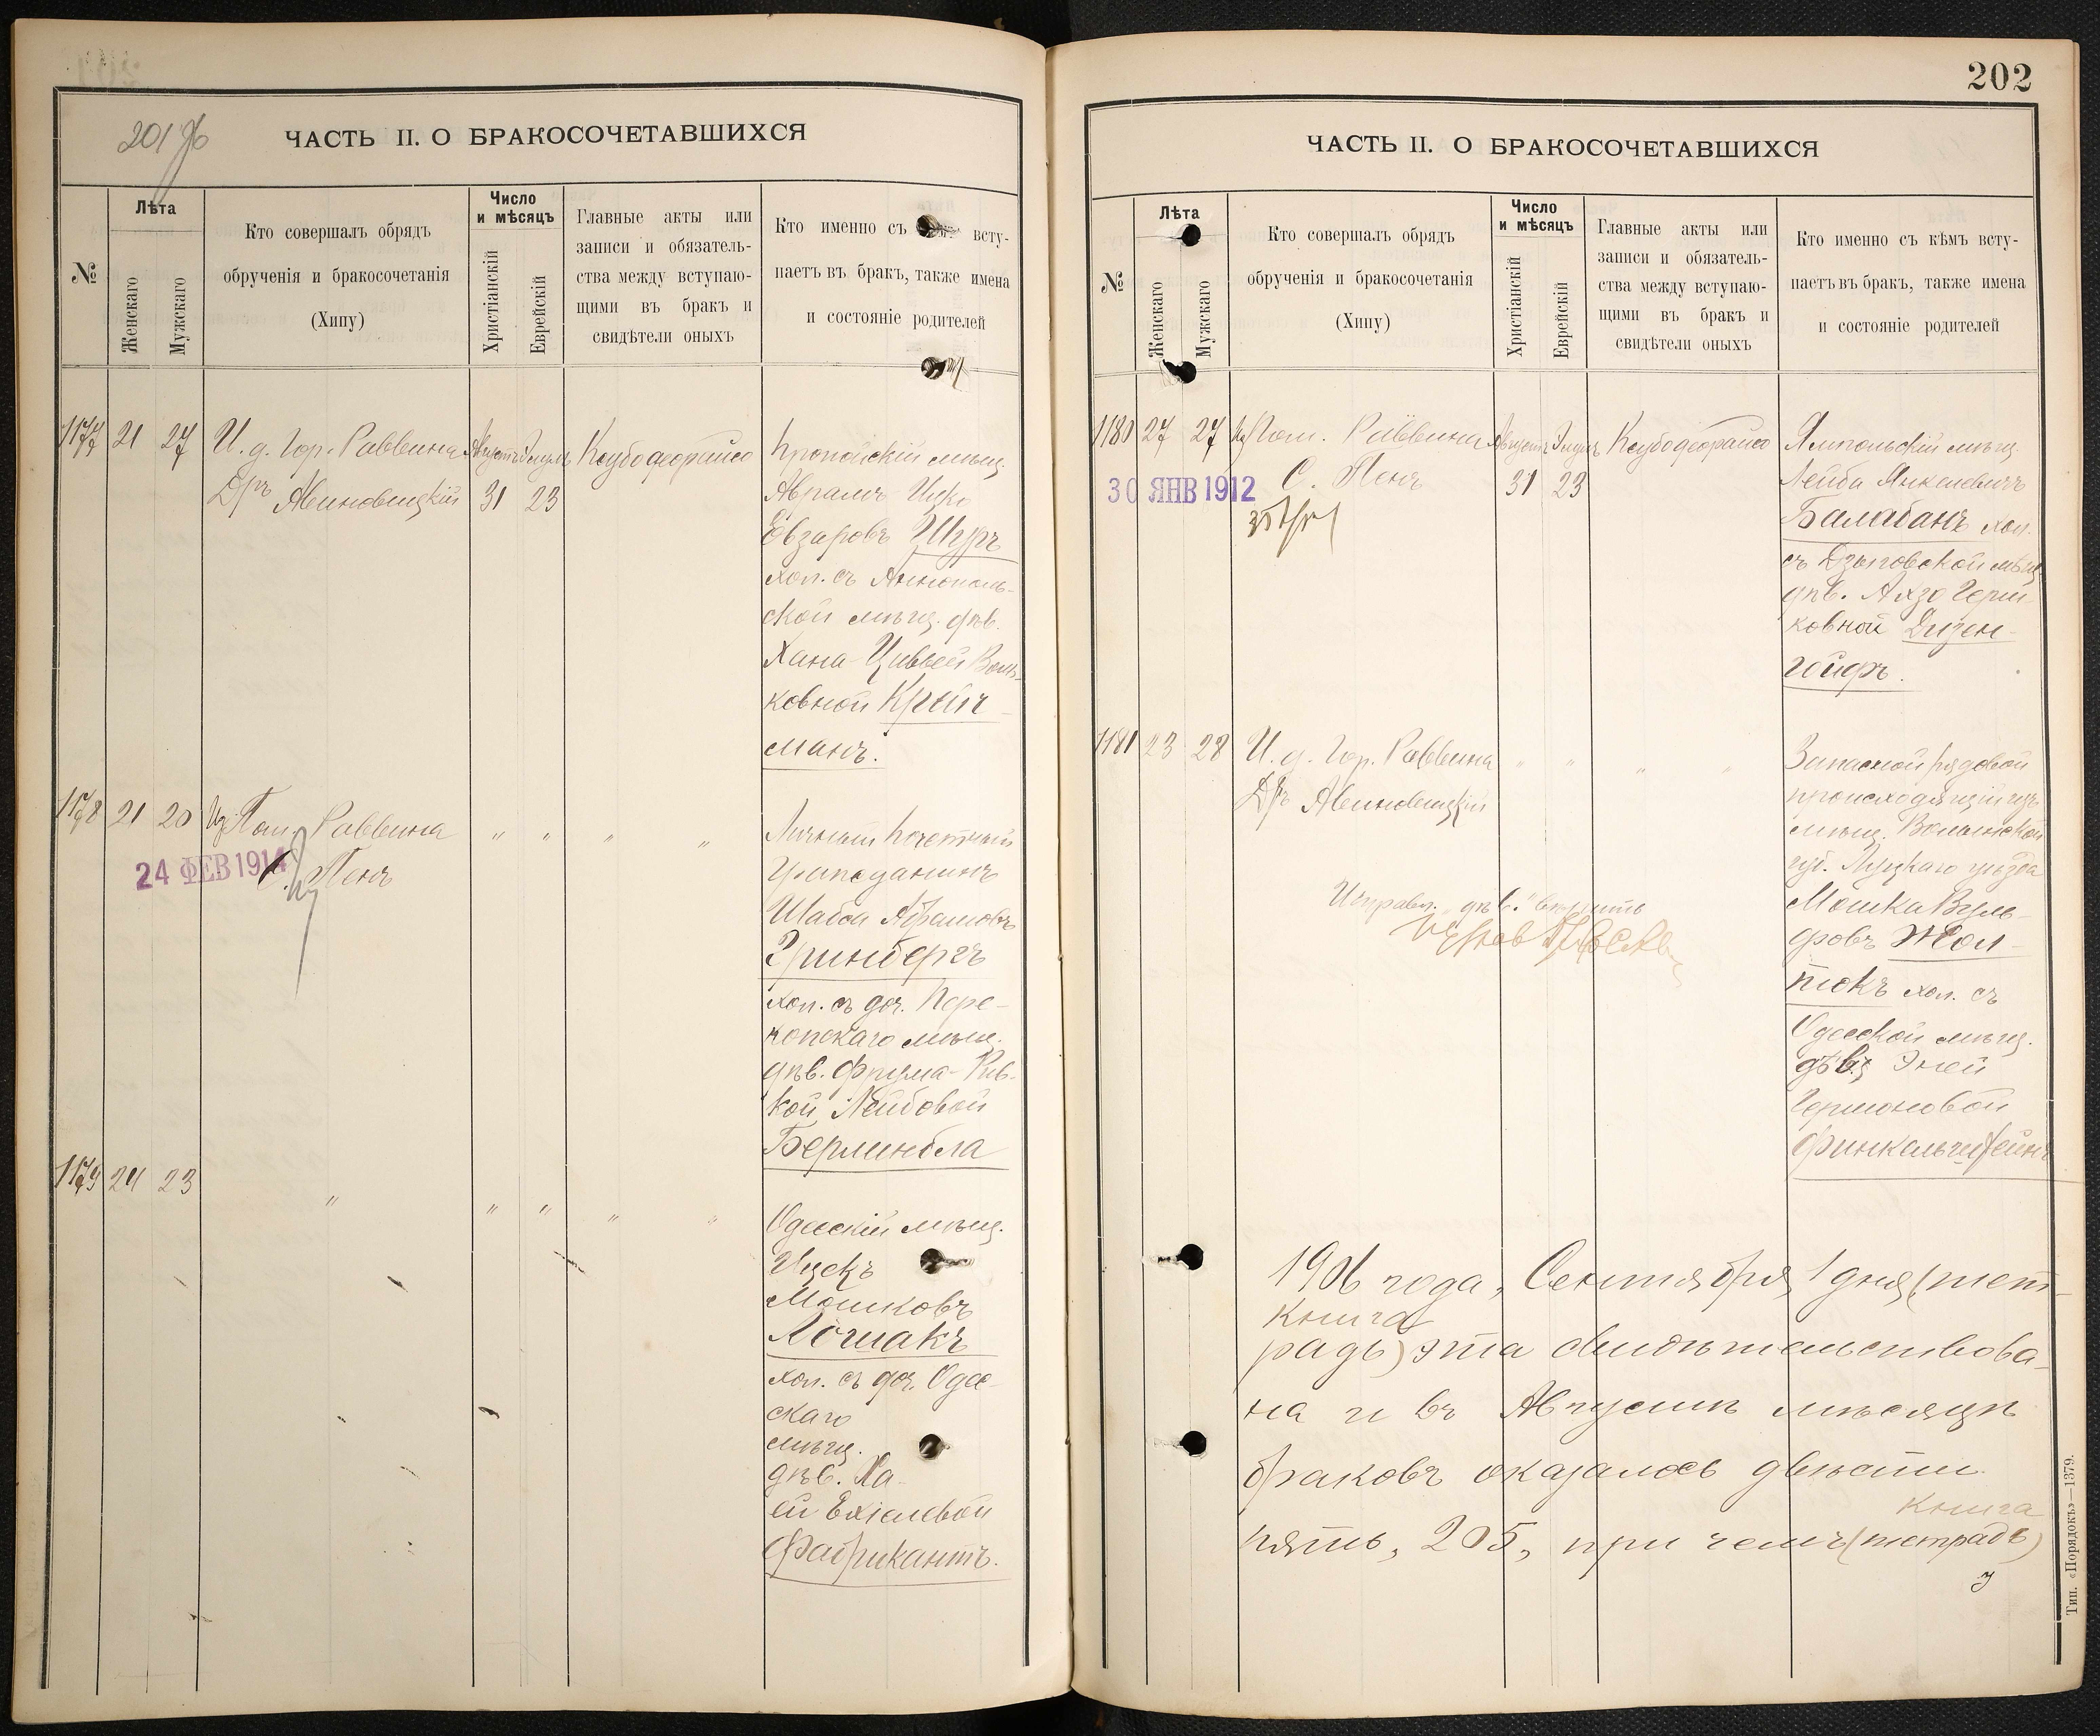 201 об
ЧАСТЬ II. О БРАКОСОЧЕТАВШИХСЯ
№
Лѣта
Женскаго
Мужскаго
Кто совершалъ обрядъ
обрученія и бракосочетанія
(Хипу)
Число
и мѣсяцъ
Христіанскій
Еврейскій
Главные акты или
записи и обязатель-
ства между вступаю-
щими въ бракъ и
свидѣтели оныхъ
Кто именно съ всту-
паетъ въ бракъ, также имена
и состояніе родителей
1177 21 27
И. д. Гор. Раввина
Дръ Авиновицкій
Августъ Элулъ
31 23
Ксубо деорайсо
Пропойскій мѣщ.
Авраамъ Ицко
Евзаровъ Шуръ
хол. съ Аннополь-
ской мѣщ. дѣв.
Хана-Цивьей Воль-
ковной Крейч-
манъ.
1178 21 20
Пом. Раввина
С. Пенъ
24 ФЕВ 1914
" " " "
Личный Почетный
Гражданинъ
Шабса Абрамовъ
Гринбергъ
хол. съ доч. Пере-
копскаго мѣщ.
дѣв. Фрума-Рив-
кой Лейбовой
Берлинбла
1179 24 23
" " " " "
Одесскій мѣщ.
Ицекъ
Мошковъ
Лошакъ
хол. съ доч. Одес-
скаго
мѣщ.
дѣв. Ха-
ей Ехіелевой
Фабрикантъ.
202
ЧАСТЬ II. О БРАКОСОЧЕТАВШИХСЯ
№
Лѣта
Женскаго
Мужскаго
Кто совершалъ обрядъ
обрученія и бракосочетанія
(Хипу)
Число
и мѣсяцъ
Христіанскій
Еврейскій
Главные акты или
записи и обязатель-
ства между вступаю-
щими въ бракъ и
свидѣтели оныхъ
Кто именно съ кѣмъ всту-
паетъ въ бракъ, также имена
и состояніе родителей
1180 27 27
Пом. Раввина
С. Пенъ
30 ЯНВ 1912
Августъ Элулъ
31 23
Ксубо деорайсо
Ямпольскій мѣщ.
Лейба Янкелевичъ
Балабанъ хол.
съ Дзыговской мѣщ.
дѣв. Ахзо Герш-
ковной Дизен-
гойфъ.
1181 23 28
И. д. Гор. Раввина
Дръ Авиновицкій
" " " "
Запасной рядовой
происходящій изъ
мѣщ. Волынской
губ. Луцкаго уѣзда
Мошка Вуль-
фовъ Жол-
токъ хол. съ
Одесской мѣщ.
дѣв. Эней
Гершоновой
Финкельштейнъ
Исправл. "дѣв." вѣрить
1906 года, Сентября 1 дня, (тет-
книга
радь) эта свидѣтельствова-
на и въ Августѣ мѣсяцѣ
браковъ оказалось двѣсти
книга
пять, 205, при чемъ (тетрадь)
Тип. «Порядокъ»—1379.